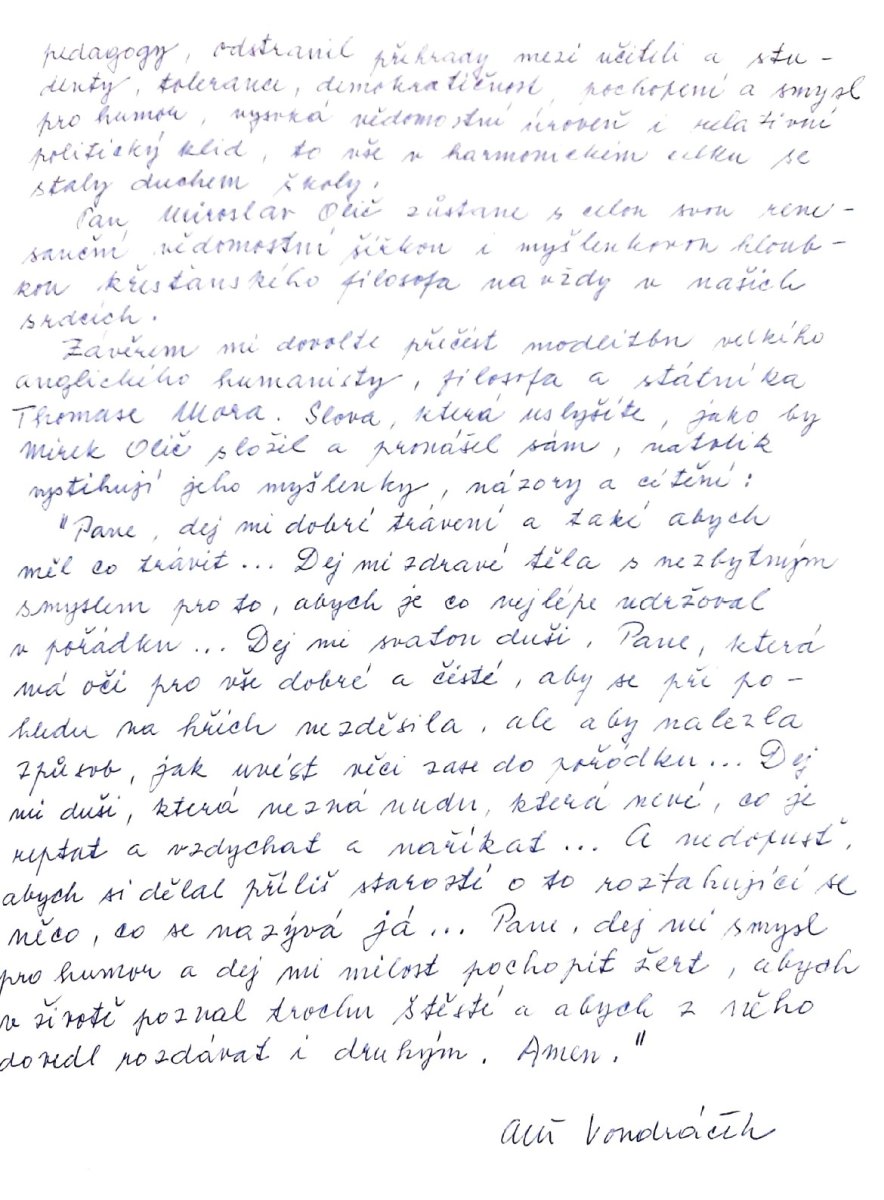 pedagogy, odstranil přehrady mezi učiteli a stu-
denty, tolerance, demokratičnost, pochopení a smysl
pro humor, vysoká vědomostní úroveň i relativní
politický klid, to vše v harmonickém celku se
staly duchem školy.
Pan Miroslav Olič zůstane s celou svou rene-
sanční vědomostní šířkou i myšlenkovou hloub-
kou křesťanského filosofa navždy v našich
srdcích.
Závěrem mi dovolte přečíst modlitbu velkého
anglického humanisty, filosofa a státníka
Thomase Mora. Slova, která uslyšíte, jako by
Mirek Olič složil a pronášel sám, natolik
vystihují jeho myšlenky, názory a cítění:
"Pane, dej mi dobré trávení a také abych
měl co trávit... Dej mi zdravé těla s nezbytným
smyslem pro to, abych je co nejlépe udržoval
v pořádku... Dej mi svatou duši, Pane, která
má oči pro vše dobré a čisté, aby se při po-
hledu na hřích nezděsila, ale aby nalezla
způsob, jak uvést věci zase do pořádku... Dej
mi duši, která nezná nudu, která neví, co je
reptat a vzdychat a naříkat... A nedopusť,
abych si dělal příliš starostí o to roztahující se
něco, co se nazývá já... Pane, dej mi smysl
pro humor a dej mi milost pochopit žert, abych
v životě poznal trochu štěstí a abych z něho
dovedl rozdávat i druhým. Amen."
Aleš Vondráček